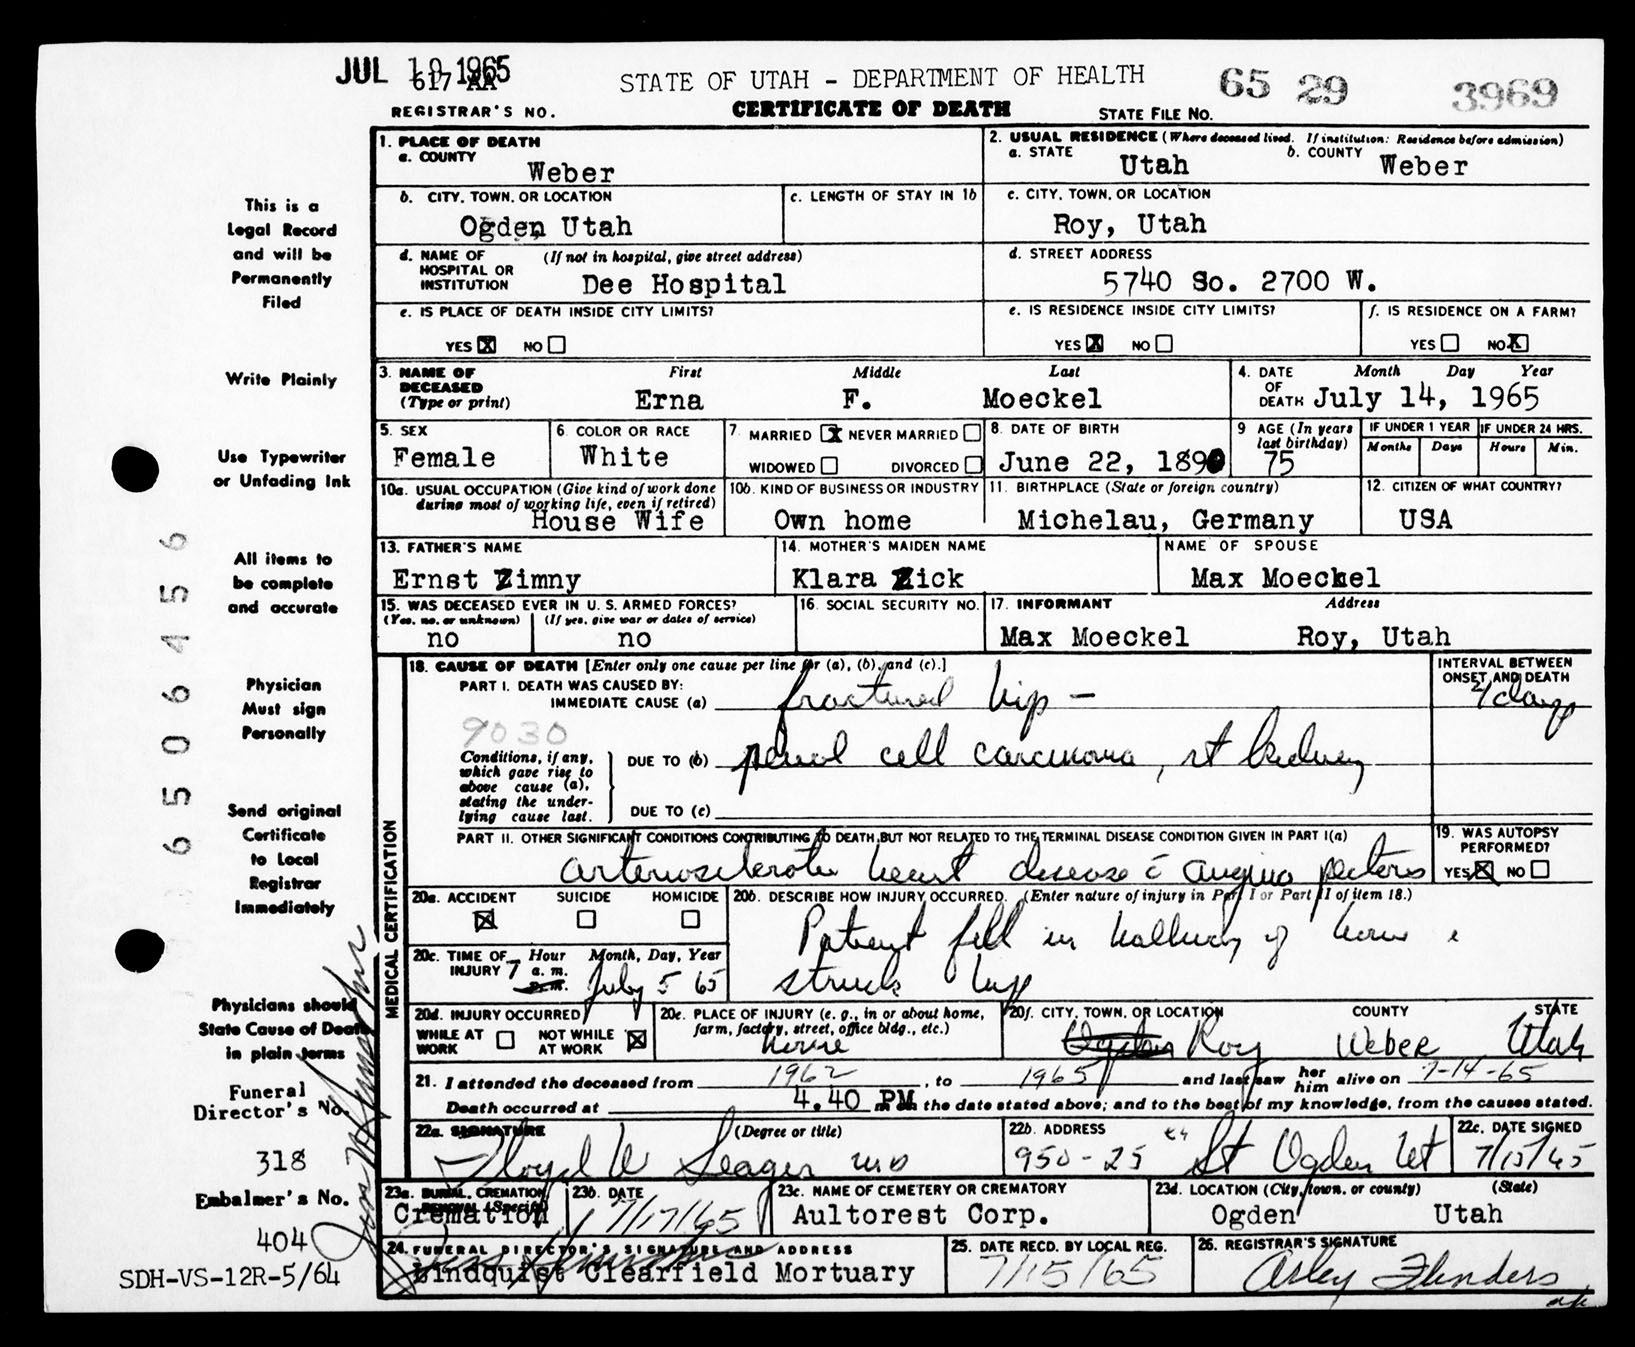 JUL 19 1965
617 AA
REGISTRAR'S NO.
STATE OF UTAH - DEPARTMENT OF HEALTH
CERTIFICATE OF DEATH
STATE FILE NO.
65 29 3969
This is a
Legal Record
and will be
Permanently
Filed
Write Plainly
Use Typewriter
or Unfading Ink
All items to
be complete
and accurate
Physician
Must sign
Personally
Send original
Certificate
to Local
Registrar
Immediately
Physicians should
State Cause of Death
in plain terms
Funeral
Director's No.
318
Embalmer's No.
404
SDH-VS-12R-5/64
65 06456
1. PLACE OF DEATH
a. COUNTY
Weber
2. USUAL RESIDENCE (Where deceased lived. If institution: Residence before admission)
a. STATE Utah b. COUNTY Weber
b. CITY, TOWN, OR LOCATION
Ogden, Utah
c. LENGTH OF STAY IN 1b
c. CITY, TOWN, OR LOCATION
Roy, Utah
d. NAME OF HOSPITAL OR INSTITUTION (If not in hospital, give street address)
Dee Hospital
d. STREET ADDRESS
5740 So. 2700 W.
e. IS PLACE OF DEATH INSIDE CITY LIMITS?
YES X NO
e. IS RESIDENCE INSIDE CITY LIMITS?
YES X NO
f. IS RESIDENCE ON A FARM?
YES NO X
3. NAME OF DECEASED (Type or print)
First Middle Last
Erna F. Moeckel
4. DATE OF DEATH Month Day Year
July 14, 1965
5. SEX
Female
6. COLOR OR RACE
White
7. MARRIED X NEVER MARRIED
WIDOWED DIVORCED
8. DATE OF BIRTH
June 22, 1890
9 AGE (In years last birthday)
75
IF UNDER 1 YEAR
Months Days
IF UNDER 24 HRS.
Hours Min.
10a. USUAL OCCUPATION (Give kind of work done during most of working life, even if retired)
House Wife
10b. KIND OF BUSINESS OR INDUSTRY
Own home
11. BIRTHPLACE (State or foreign country)
Michelau, Germany
12. CITIZEN OF WHAT COUNTRY?
USA
13. FATHER'S NAME
Ernst Zimny
14. MOTHER'S MAIDEN NAME
Klara Zick
NAME OF SPOUSE
Max Moeckel
15. WAS DECEASED EVER IN U.S. ARMED FORCES?
(Yes, no, or unknown) (If yes, give war or dates of service)
no no
16. SOCIAL SECURITY NO.
17. INFORMANT Address
Max Moeckel Roy, Utah
MEDICAL CERTIFICATION
18. CAUSE OF DEATH [Enter only one cause per line for (a), (b), and (c).]
PART I. DEATH WAS CAUSED BY:
IMMEDIATE CAUSE (a) fractured hip -
INTERVAL BETWEEN ONSET AND DEATH
days
9030
Conditions, if any, which gave rise to above cause (a), stating the underlying cause last.
DUE TO (b) renal cell carcinoma, rt kidney
DUE TO (c)
PART II. OTHER SIGNIFICANT CONDITIONS CONTRIBUTING TO DEATH BUT NOT RELATED TO THE TERMINAL DISEASE CONDITION GIVEN IN PART I(a)
arteriosclerotic heart disease c̄ angina pectoris
19. WAS AUTOPSY PERFORMED?
YES X NO
20a. ACCIDENT SUICIDE HOMICIDE
X
20b. DESCRIBE HOW INJURY OCCURRED. (Enter nature of injury in Part I or Part II of item 18.)
Patient fell in hallway of home &
struck hip
20c. TIME OF INJURY Hour Month, Day, Year
7 a. m. p. m. July 5 65
20d. INJURY OCCURRED
WHILE AT WORK NOT WHILE AT WORK X
20e. PLACE OF INJURY (e. g., in or about home, farm, factory, street, office bldg., etc.)
home
20f. CITY, TOWN, OR LOCATION COUNTY STATE
Ogden Roy Weber Utah
21. I attended the deceased from 1962, to 1965 and last saw her him alive on 7-14-65
Death occurred at 4.40 PM m. on the date stated above; and to the best of my knowledge, from the causes stated.
22a. SIGNATURE (Degree or title)
Floyd W Seager MD
22b. ADDRESS
950-25 St Ogden Ut
22c. DATE SIGNED
7/15/65
23a. BURIAL, CREMATION, REMOVAL (Specify)
Cremation
23b. DATE
7/17/65
23c. NAME OF CEMETERY OR CREMATORY
Aultorest Corp.
23d. LOCATION (City, town, or county) (State)
Ogden Utah
24. FUNERAL DIRECTOR'S SIGNATURE AND ADDRESS
Lindquist Clearfield Mortuary
25. DATE RECD. BY LOCAL REG.
7/15/65
26. REGISTRAR'S SIGNATURE
Arley Flinders